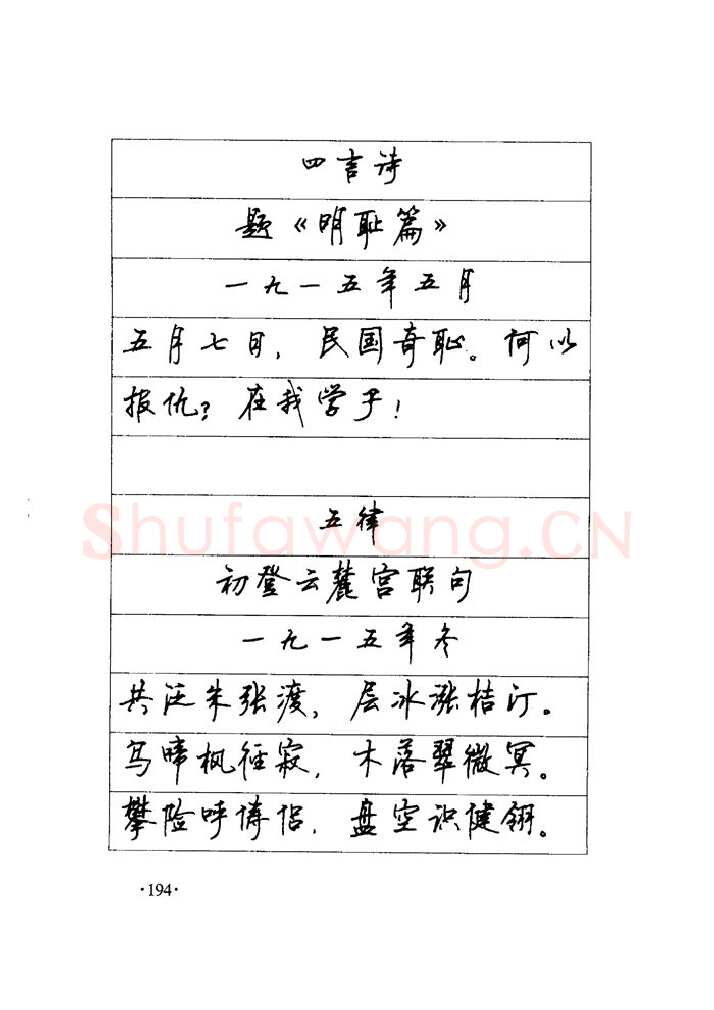 四言诗
题《明耻篇》
一九一五年五月
五月七日，民国奇耻。何以
报仇？在我学子！
Shufawang.CN
五律
初登云麓宫联句
一九一五年冬
共泛朱张渡，层冰涨桔汀。
鸟啼枫径寂，木落翠微冥。
攀险呼俦侣，盘空识健翎。
·194·